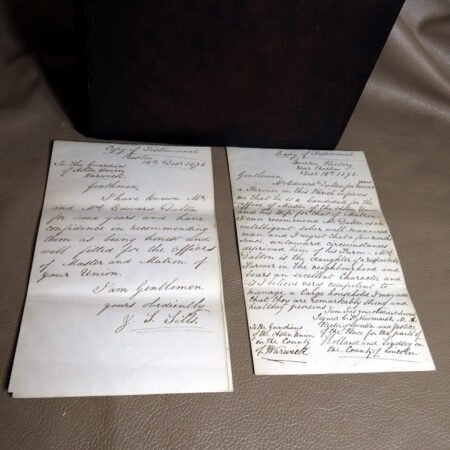 Copy of Testimonial
Boston
18th Decr 1876
To the Guardians
of Aston Union
Warwick
Gentlemen,
I have known Mr
and Mrs Edward Dalton
for some years and have
confidence in recommending
them as being honest and
well fitted for the offices
of Master and Matron of
your Union.
I am Gentlemen
yours obediently
Copy of Testimonial
Rectory
near Boston
Decr 18th 1876.
Gentlemen,
Mr Edward Dalton for years
a Farmer in this Parish informs
me that he is a Candidate for the
office of Master of the Aston Union
and his Wife for that of Matron.
I can recommend Mr Dalton as an
intelligent sober well mannered
man and I regret that a few months
since untoward circumstances
deprived him of his Farm. Mrs
Dalton is the daughter of a respectable
Farmer in the neighbourhood and
bears an excellent Character and
is I believe very competent to
manage a large household I may add
that they are remarkably strong and
healthy persons.
I am Sirs your obedient Servant
M.A.
Rector of and Justice
of the Peace for the parts of
Holland and Lindsey in
the County of Lincoln.
To the Guardians
of the Aston Union
in the County
of Warwick